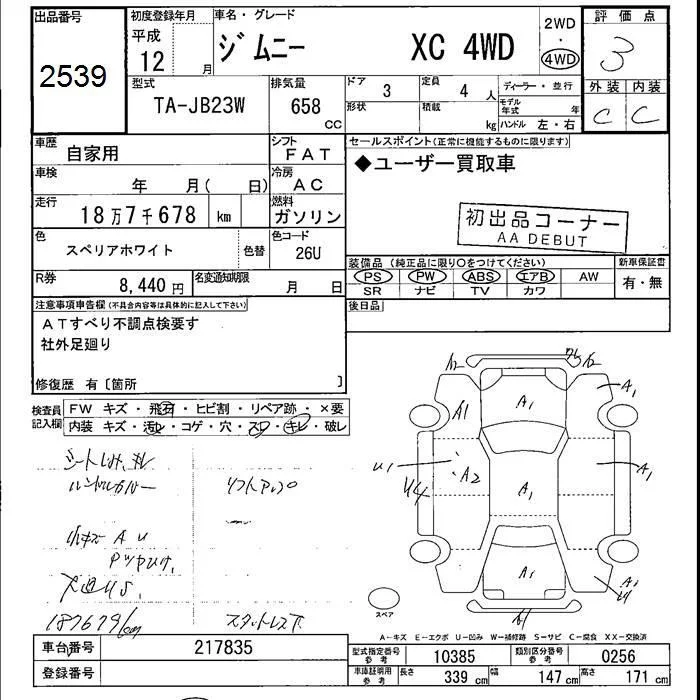 出品番号
2539
初度登録年月
平成
12 月
車名・グレード
ジムニー XC 4WD
2WD
・
4WD
評価点
3
外装 内装
C C
型式
TA-JB23W
排気量
658
CC
ドア
3
定員
4 人
形状
積載
kg
ディーラー・並行
モデル年式 年
ハンドル 左・右
車歴
自家用
シフト
FAT
車検
年 月( 日)
冷房
AC
走行
18万7千678 km
燃料
ガソリン
色
スペリアホワイト
色替
色コード
26U
R券
8,440 円
名変通知期限
月 日
セールスポイント(正常に機能するものに限ります)
◆ユーザー買取車
初出品コーナー
AA DEBUT
装備品 (純正品に限り○をつけてください)
新車保証書
PS PW ABS エアB AW
SR ナビ TV カワ
有・無
後日品
注意事項申告欄(不具合内容等は具体的に記入して下さい)
ATすべり不調点検要す
社外足廻り
修復歴 有〔箇所 〕
検査員
記入欄
FW キズ・飛石・ヒビ割・リペア跡・×要
内装 キズ・汚レ・コゲ・穴・スレ・キレ・破レ
リフトアップ
小キズ A U
187679km
スタットレス下
A2
A2
A1
A1
A1
U1
A2
U4
A1
A1
A1
スペア
A-キズ E-エクボ U-凹み W-補修跡 S-サビ C-腐食 XX-交換済
車台番号
217835
登録番号
型式指定番号
参考
10385
類別区分番号
参考
0256
車庫証明用
参考
長さ 339 cm 幅 147 cm 高さ 171 cm